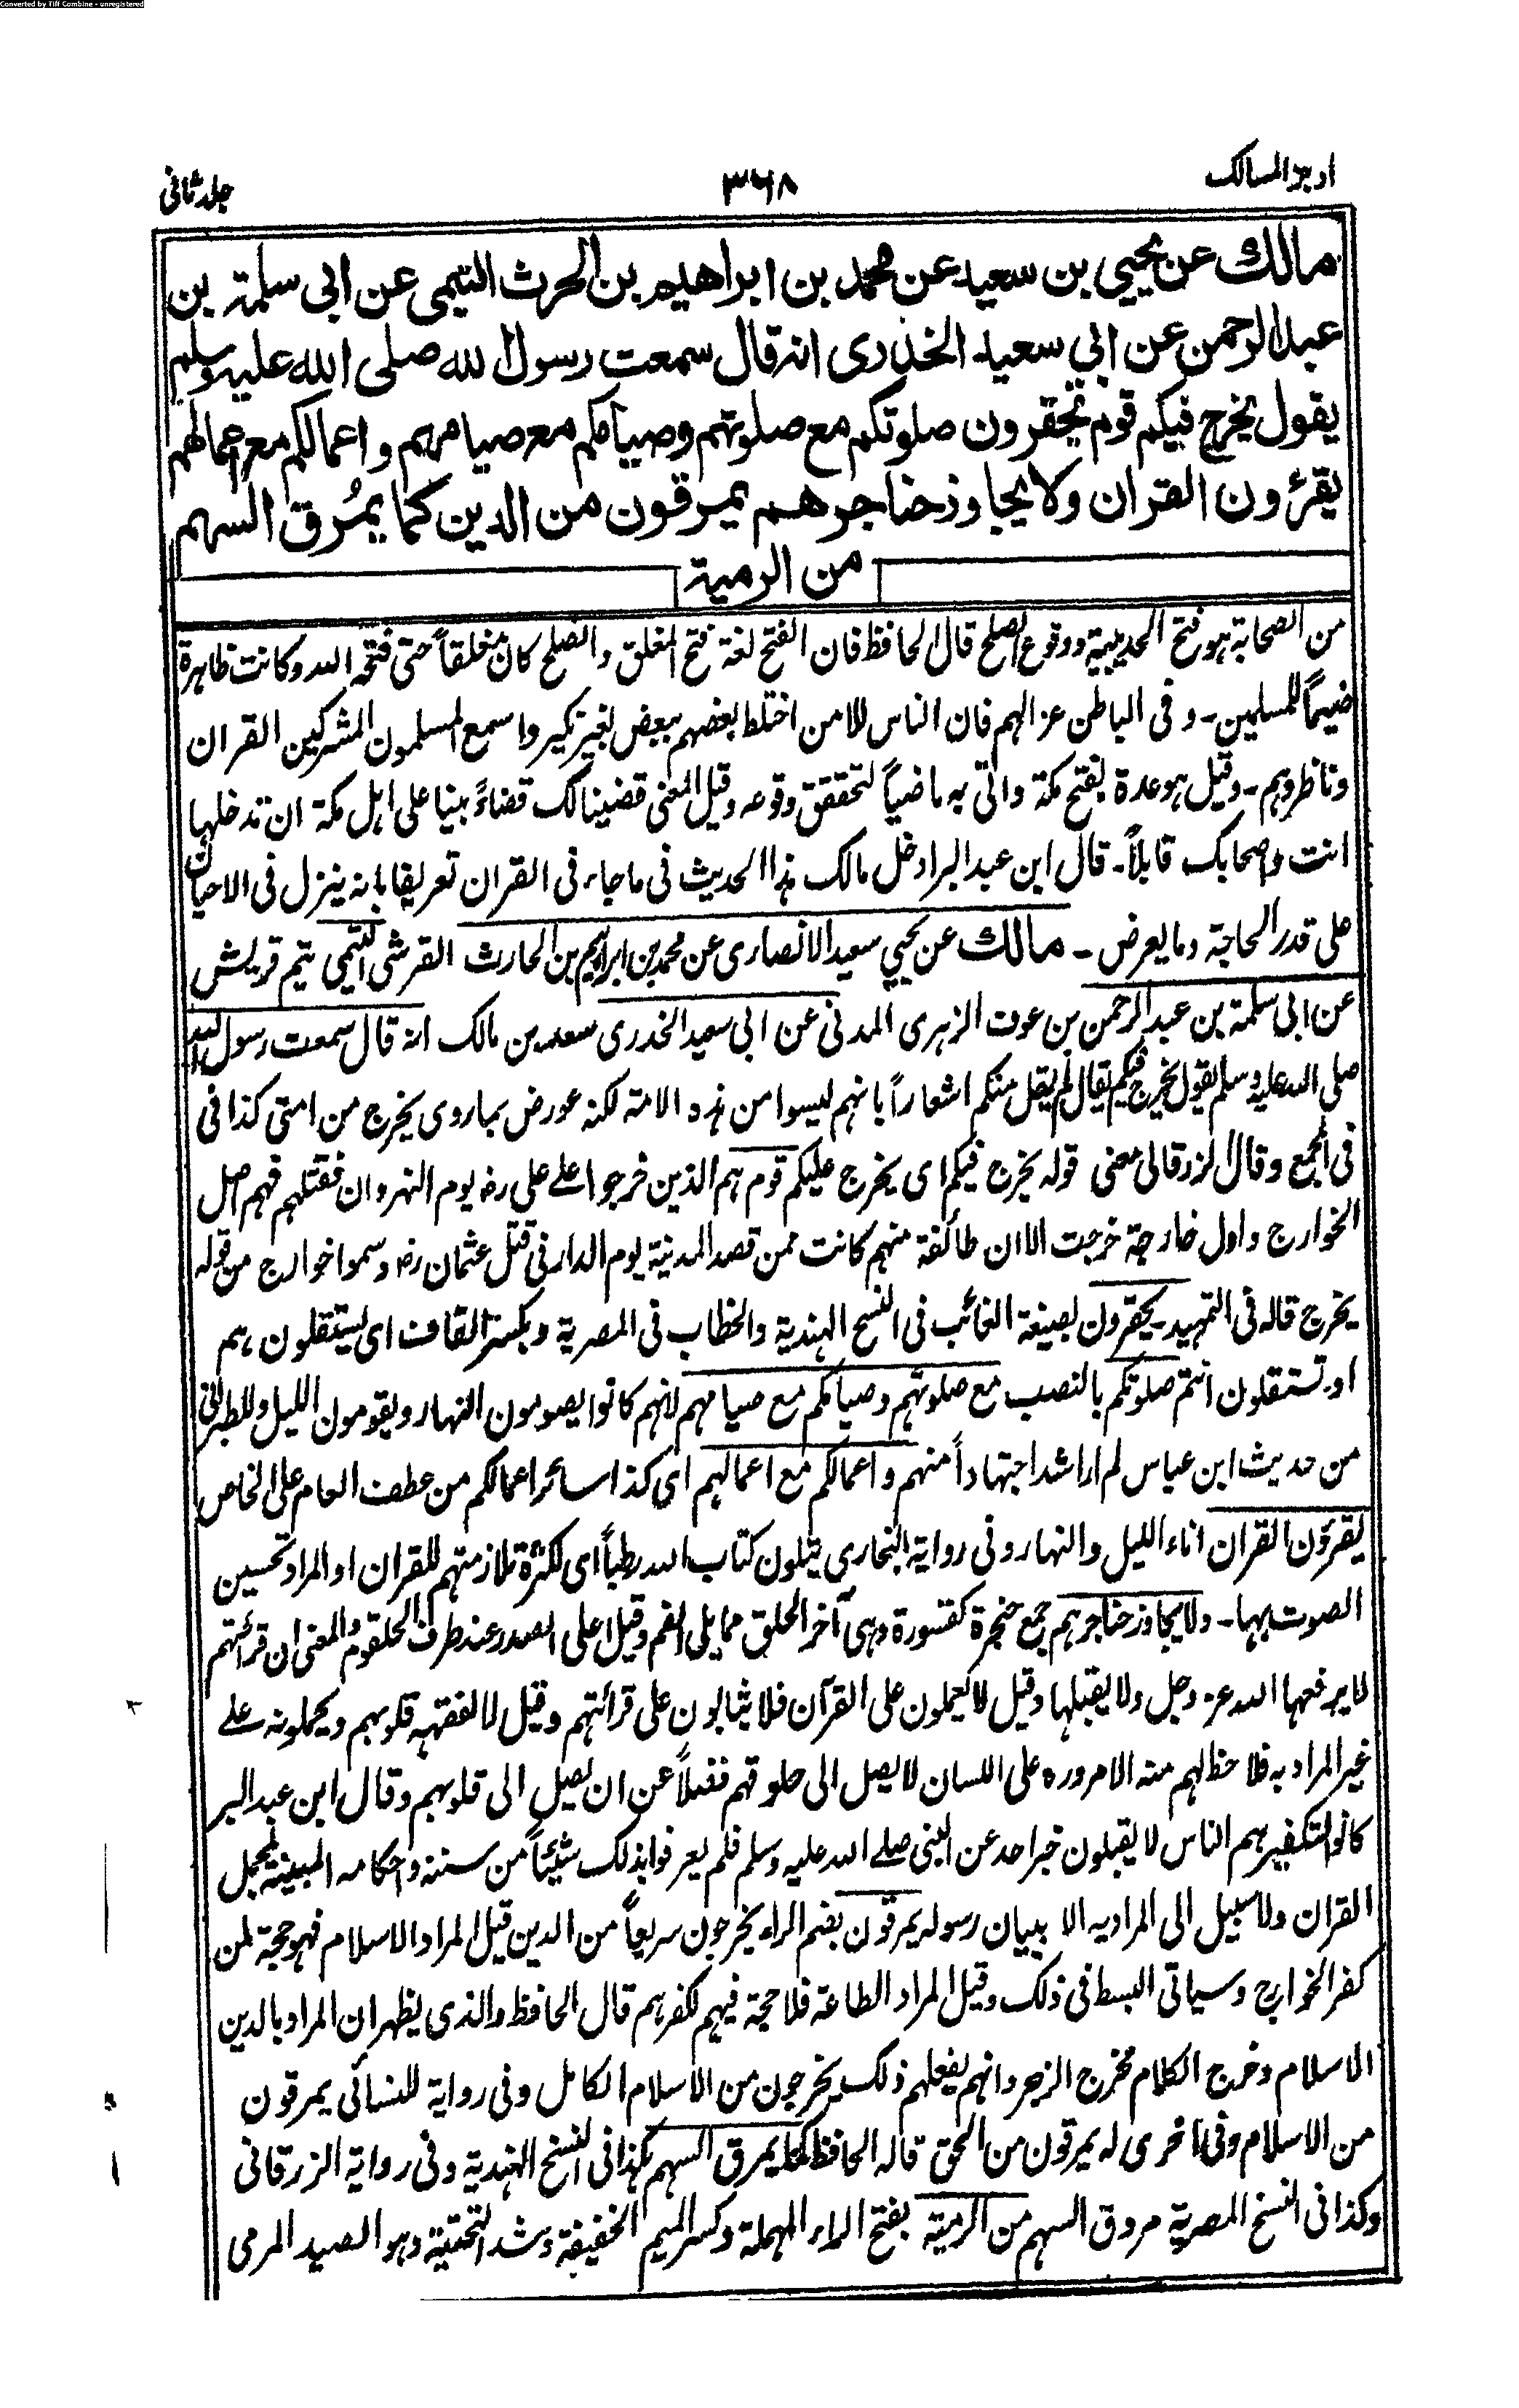 Converted by Tiff Combine - unregistered
اوجز المسالك
٣٦٨
جلد ثانی
مالك عن يحيي بن سعيد عن محمد بن ابراهيم بن الحرث التيمي عن ابي سلمة بن
عبد الرحمن عن ابي سعيد الخدرى انه قال سمعت رسول الله صلى الله عليه وسلم
يقول يخرج فيكم قوم تحقرون صلوتكم مع صلوتهم وصيامكم مع صيامهم واعمالكم مع اعمالهم
يقرؤون القران ولا يجاوز حناجرهم يمرقون من الدين كما يمرُق السهم
من الرمية
من الصحابة هو فتح الحديبية ووقوع الصلح قال الحافظ فان الفتح لغة فتح المغلق والصلح كان مغلقاً حتى فتحه الله وكانت ظاهرة
ضيماً للمسلمين۔ وفى الباطن عزا لهم فان الناس للامن اختلط بعضهم ببعض بغير نكير واسمع المسلمون المشركين القران
وناظروهم۔ وقيل هو عدة بفتح مكة واتى به ماضياً لتحقق وقوعه وقيل المعنى قضينا لك قضاءً بينا على اهل مكة ان تدخلها
انت واصحابك قابلاً۔ قال ابن عبد البر ادخل مالك هذا الحديث فى ما جاء فى القران تعريفا بانه ينزل فى الاحيان
على قدر الحاجة وما يعرض۔ مالك عن يحيي سعيد الانصارى عن محمد بن ابراهيم بن الحارث القرشى التيمى تيم قريش
عن ابى سلمة بن عبد الرحمن بن عوف الزهرى المدنى عن ابى سعيد الخدرى سعد بن مالك انه قال سمعت رسول الله
صلى الله عليه وسلم يقول يخرج فيكم يقال لم يقل منكم اشعاراً بانهم ليسوا من هذه الامة لكنه عورض بما روى يخرج من امتى كذا فى
فى المجمع وقال الزرقانى معنى قوله يخرج فيكم اى يخرج عليكم قوم هم الذين خرجوا على على رضـ يوم النهروان فقتلهم فهم اصل
الخوارج واول خارجة خرجت الا ان طائفة منهم كانت ممن قصد المدينة يوم الدار فى قتل عثمان رضـ وسموا خوارج من قوله
يخرج قاله فى التمهيد۔ يحقرون بصيغة الغائب فى النسخ الهندية والخطاب فى المصرية وبكسر القاف اى يستقلون هم
او تستقلون انتم صلوتكم بالنصب مع صلوتهم وصيامكم مع صيامهم لانهم كانوا يصومون النهار ويقومون الليل وللطبرانى
من حديث ابن عباس لم ار اشد اجتهاداً منهم واعمالكم مع اعمالهم اى كذا سائر اعمالكم من عطف العام على الخاص
يقرؤن القران اناء الليل والنهار وفى رواية البخارى يتلون كتاب الله رطباً اى لكثرة ملازمتهم للقران او المراد تحسين
الصوت بها۔ ولا يجاوز حناجرهم جمع حنجرة كقسورة وهى آخر الحلق مما يلى الفم وقيل اعلى الصدر عند طرف الحلقوم والمعنى ان قرائتهم
لا يرفعها الله عز وجل ولا يقبلها وقيل لا يعملون على القرآن فلا يثابون على قرائتهم وقيل لا تفقهه قلوبهم ويحملونه على
غير المراد به فلا حظ لهم منه الا مروره على اللسان لا يصل الى حلوقهم فضلاً عن ان يصل الى قلوبهم وقال ابن عبد البر
كانوا لتكفيرهم الناس لا يقبلون خبر احد عن النبى صلى الله عليه وسلم فلم يعرفوا بذلك شيئاً من سننه واحكامه المبينة لمجمل
القران ولا سبيل الى المراد به الا ببيان رسوله يمرقون بضم الراء يخرجون سريعاً من الدين قيل المراد الاسلام فهو حجة لمن
كفر الخوارج وسياتى البسط فى ذلك وقيل المراد الطاعة فلا حجة فيهم لكفرهم قال الحافظ والذى يظهر ان المراد بالدين
الاسلام وخرج الكلام مخرج الزجر وانهم بفعلهم ذلك يخرجون من الاسلام الكامل وفى رواية للنسائى يمرقون
من الاسلام وفى اخرى له يمرقون من الحق قاله الحافظ كما يمرق السهم هكذا فى النسخ الهندية وفى رواية الزرقانى
وكذا فى النسخ المصرية مروق السهم من الرمية بفتح الراء المهملة وكسر الميم الخفيفة وشد التحتية وهو الصيد المرمى